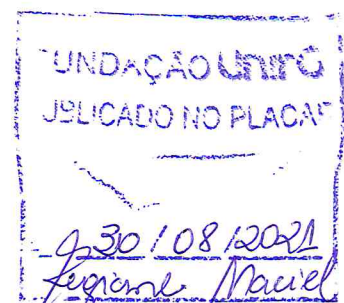 UNDAÇÃO UnirG
UBLICADO NO PLACAR
30 / 08 / 2021
Maciel